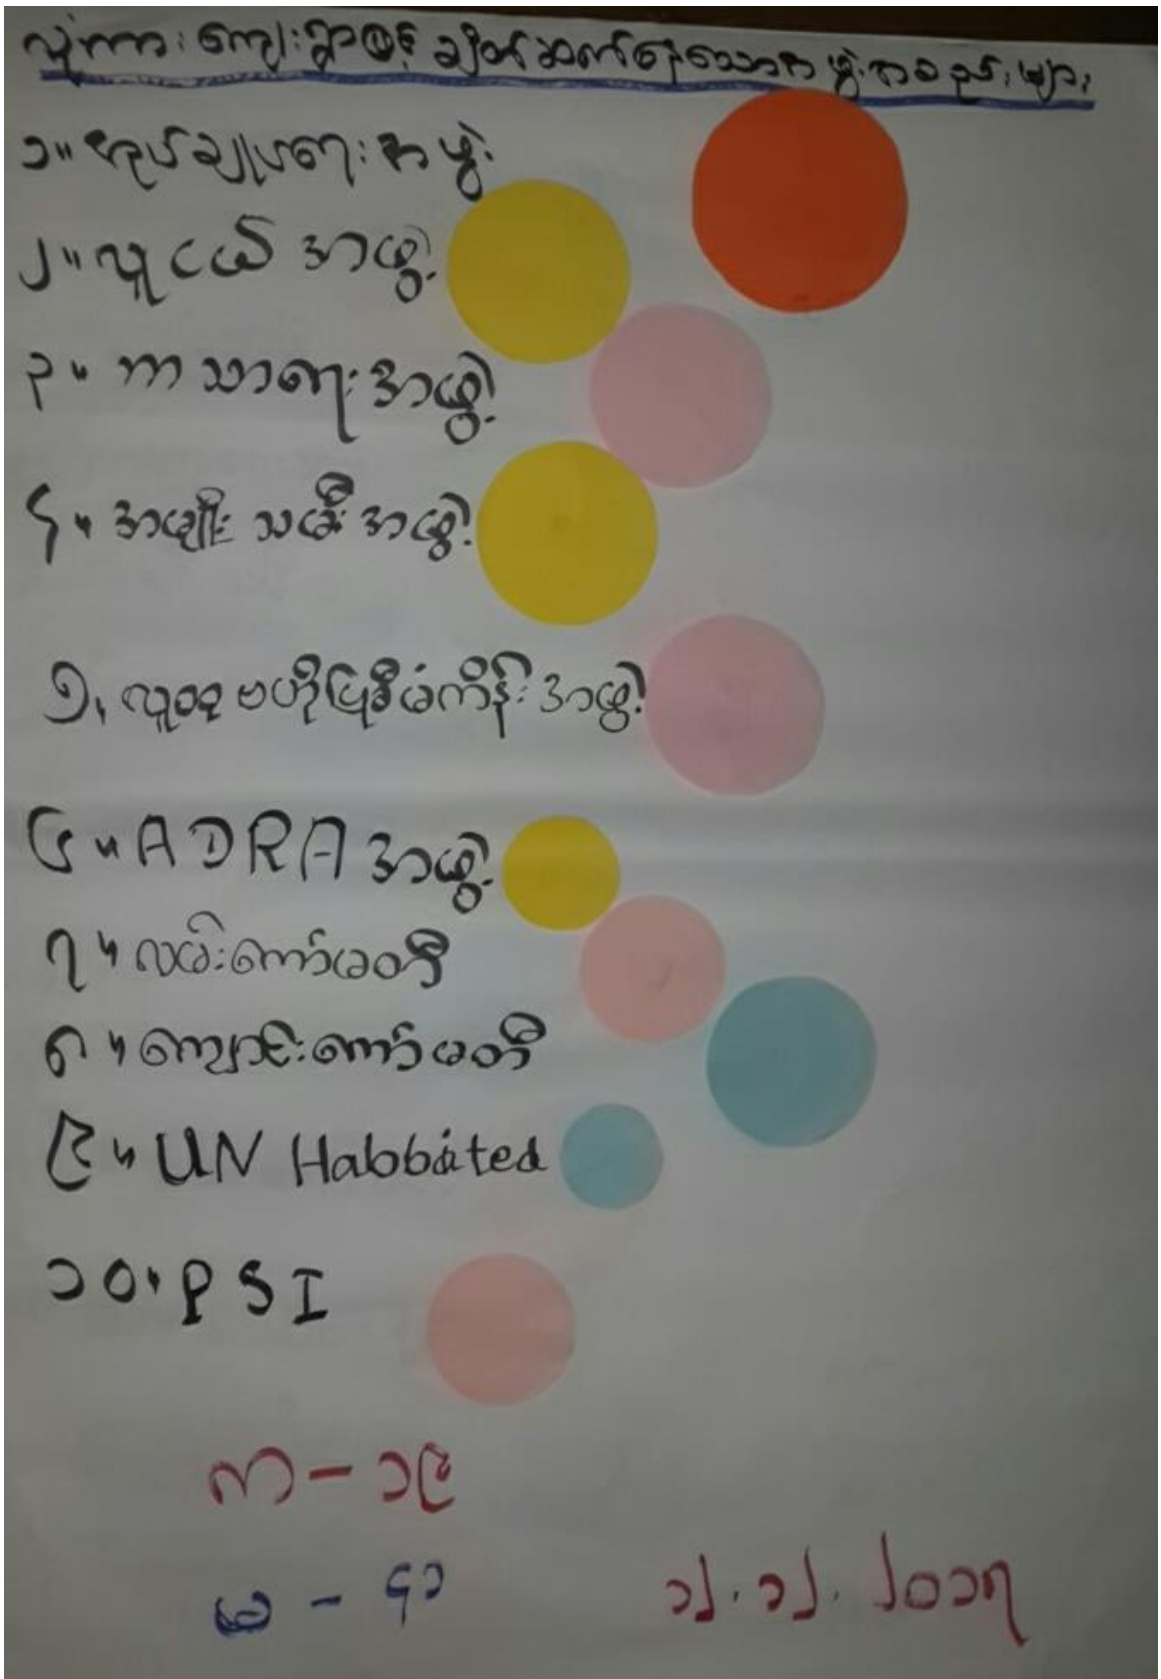 လှုံကား ကျေးရွာဖြင့် ချိတ်ဆက်နေသောအဖွဲ့အစည်းများ
၁။ အုပ်ချုပ်ရေး အဖွဲ့
၂။ လူငယ် အဖွဲ့
၃။ ကာသာရေး အဖွဲ့
၄။ အမျိုးသမီး အဖွဲ့
၅။ လူထုဗဟိုပြုစီမံကိန်း အဖွဲ့
၆။ ADRA အဖွဲ့
၇။ လမ်းကော်မတီ
၈။ ကျောင်းကော်မတီ
၉။ UN Habbited
၁၀။ PSI
ကာ - ၁၉
မ - ၄၁
၁၂.၁၂.၂၀၁၇